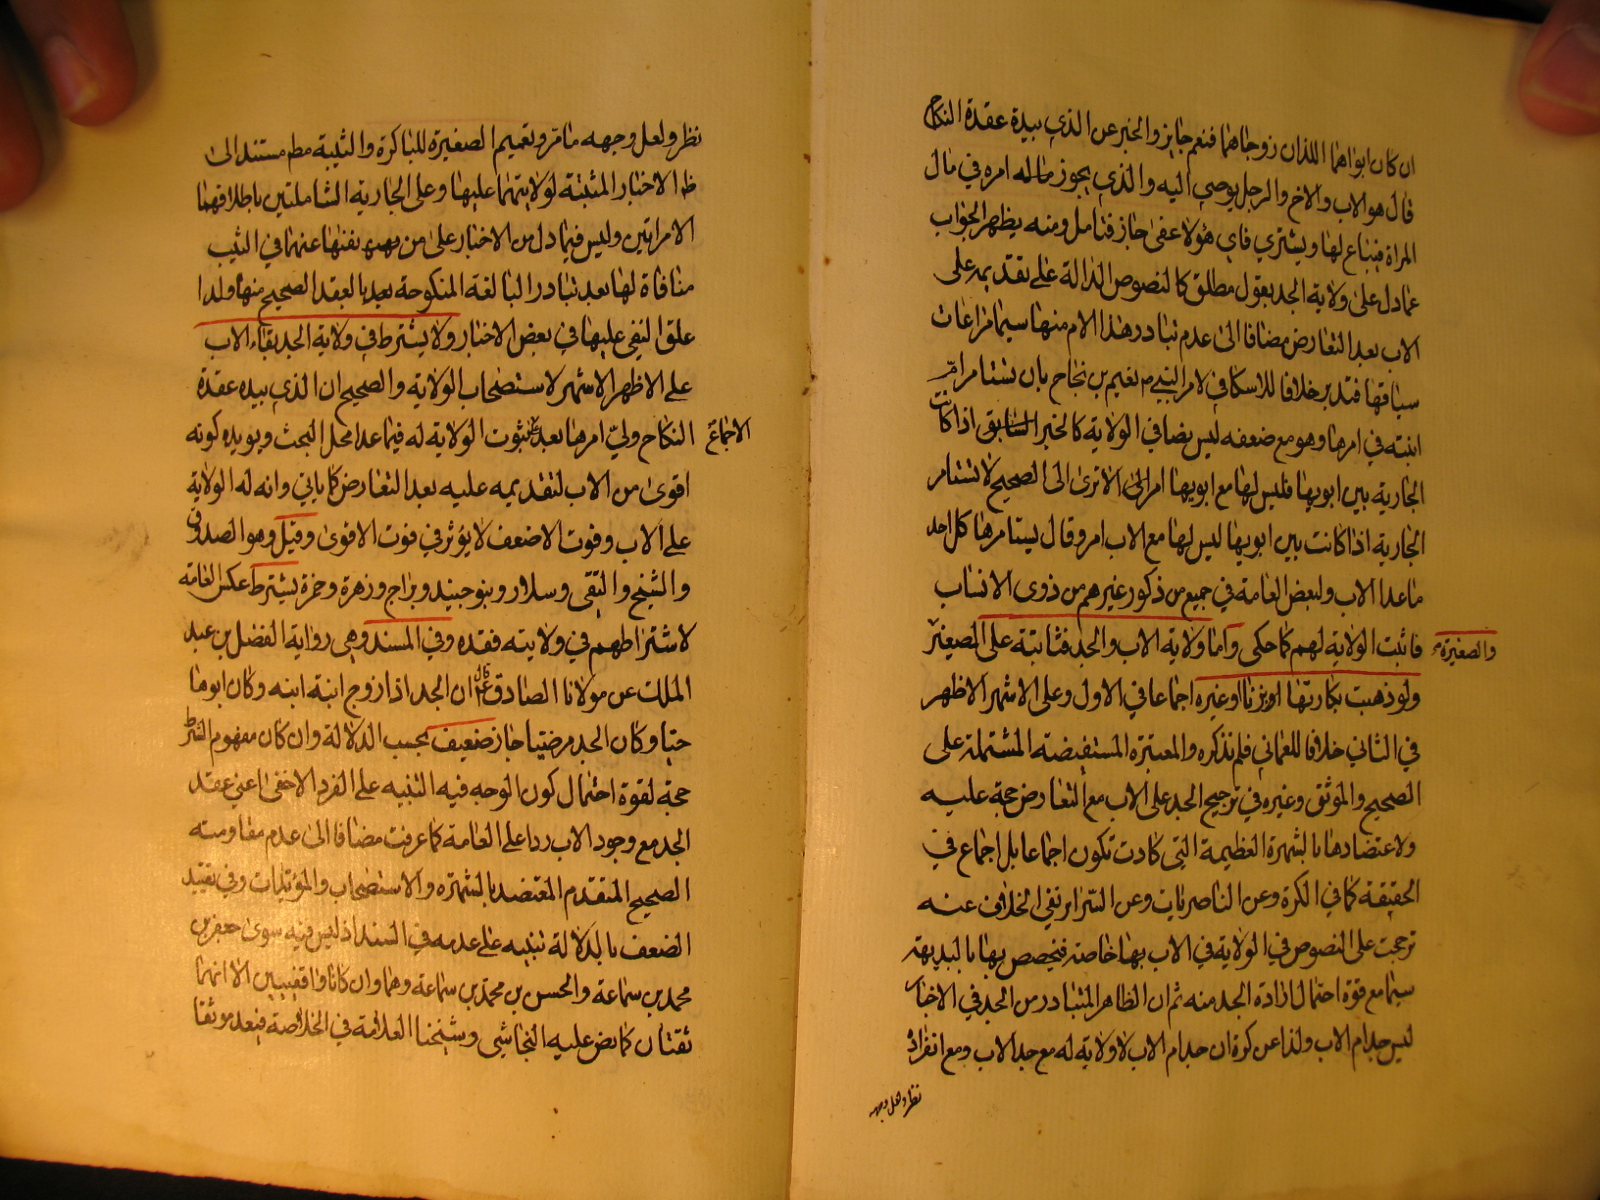 ان كان ابواهما اللذان زوجاهما فنعم جايز والخبر عن الذي بيده عقدة النكاح
قال هو الاب والاخ والرجل يوصى اليه والذي يجوز ماله امره في مال
المراة فيبتاع لها ويشتري فاي هؤلا عفى جاز فتامل ومنه يظهر الجواب
عمادل على ولاية الجد بقول مطلق كالنصوص الدالة على تقديمه على
الاب بعد التعارض مضافا الى عدم تبادر هذا الام منها سيما مراعات
سياقها فتدبر خلافا للاسكافي لامر النبي ص نعيم بن نجاح بان يستامر ام
ابنته في امرها وهو مع ضعفه ليس نصا في الولاية كالخبر اذا كانت
الجارية بين ابويها فليس لها مع ابويها امر الاترى الى الصحيح لا تستامر
الجارية اذا كانت بين ابويها ليس لها مع الاب امر وقال يستامرها كل احد
ما عدا الاب ولبعض العامة في جميع من ذكور غيرهم من ذوى الانساب
فاثبت الولاية لهم كما حكى واما ولاية الاب والجد فثابتة على الصغير
والصغيرة
ولو ذهبت بكارتها او بزنا او غيره اجماعا في الاول وعلى الاشهر الاظهر
في الثاني خلافا للعماني فلم يذكره والمعتبرة المستفيضة المشتملة على
الصحيح والموثق وغيره في ترجيح الجد على الاب مع التعارض حجة عليه
ولاعتضادها بالشهرة العظيمة التي كادت تكون اجماعا بل اجماع في
الحقيقة كما في الكرة وعن الناصريات وعن السرائر نفي الخلاف عنه
ترجحت على النصوص في الولاية في الاب بها خاصة فيخصص بها بالبديهة
سيما مع قوة احتمال ارادة الجد منه ثم ان الظاهر المتبادر من الجد في الاخبار
ليس جد ام الاب ولذا عن كرة ان جد ام الاب لا ولاية له مع جد الاب ومع انفراده
نظر ولعل وجهه
نظر ولعل وجهه ما مر وتعميم الصغيرة للباكرة والثيبة مط مستند الى
ظ الاخبار المثبتة لولايتهما عليها وعلى الجارية الشاملتين باطلاقهما
الامراتين وليس فيما دل من الاخبار على من نفتها عنهما في الثيب
منافاة لها بعد تبادر البالغة المنكوحة بعد بالعقد الصحيح منها ولذا
علق النفي عليها في بعض الاخبار ولا يشترط في ولاية الجد بقاء الاب
على الاظهر الاشهر لاستصحاب الولاية والصحيح ان الذي بيده عقدة
النكاح ولي امرها بعد ثبوت الولاية له فيما عدا محل البحث ويويده كونه
الاجماع
اقوى من الاب لتقديمه عليه بعد التعارض كما ياتي وانه له الولاية
على الاب وفوت الاضعف لا يؤثر في فوت الاقوى وقيل وهو الصدوق
والشيخ والتقى وسلار وبنو جنيد وبراج وزهرة وحمزة يشترط عكس العامة
لاشتراطهم في ولايته فقده وفي المسند وهي رواية الفضل بن عبد
الملك عن مولانا الصادق ع قال ان الجد اذا زوج ابنة ابنه وكان ابوها
حيا وكان الجد مرضيا جاز ضعيف بحسب الدلالة وان كان مفهوم الشرط
حجة لقوة احتمال كون الوجه فيه التنبيه على الفرد الاخفى اعنى عقد
الجد مع وجود الاب ردا على العامة كما عرفت مضافا الى عدم مقاومته
الصحيح المتقدم المعتضد بالشهرة والاستصحاب والمؤيدات وفي تقييد
الضعف بالدلالة تنبيه على عدمه في السند اذ ليس فيه سوى جعفر بن
محمد بن سماعة والحسن بن محمد بن سماعة وهما وان كانا واقفيين الا انهما
ثقتان كما نص عليه النجاشي وشيخنا العلامة في الخلاصة فيعد موثقا